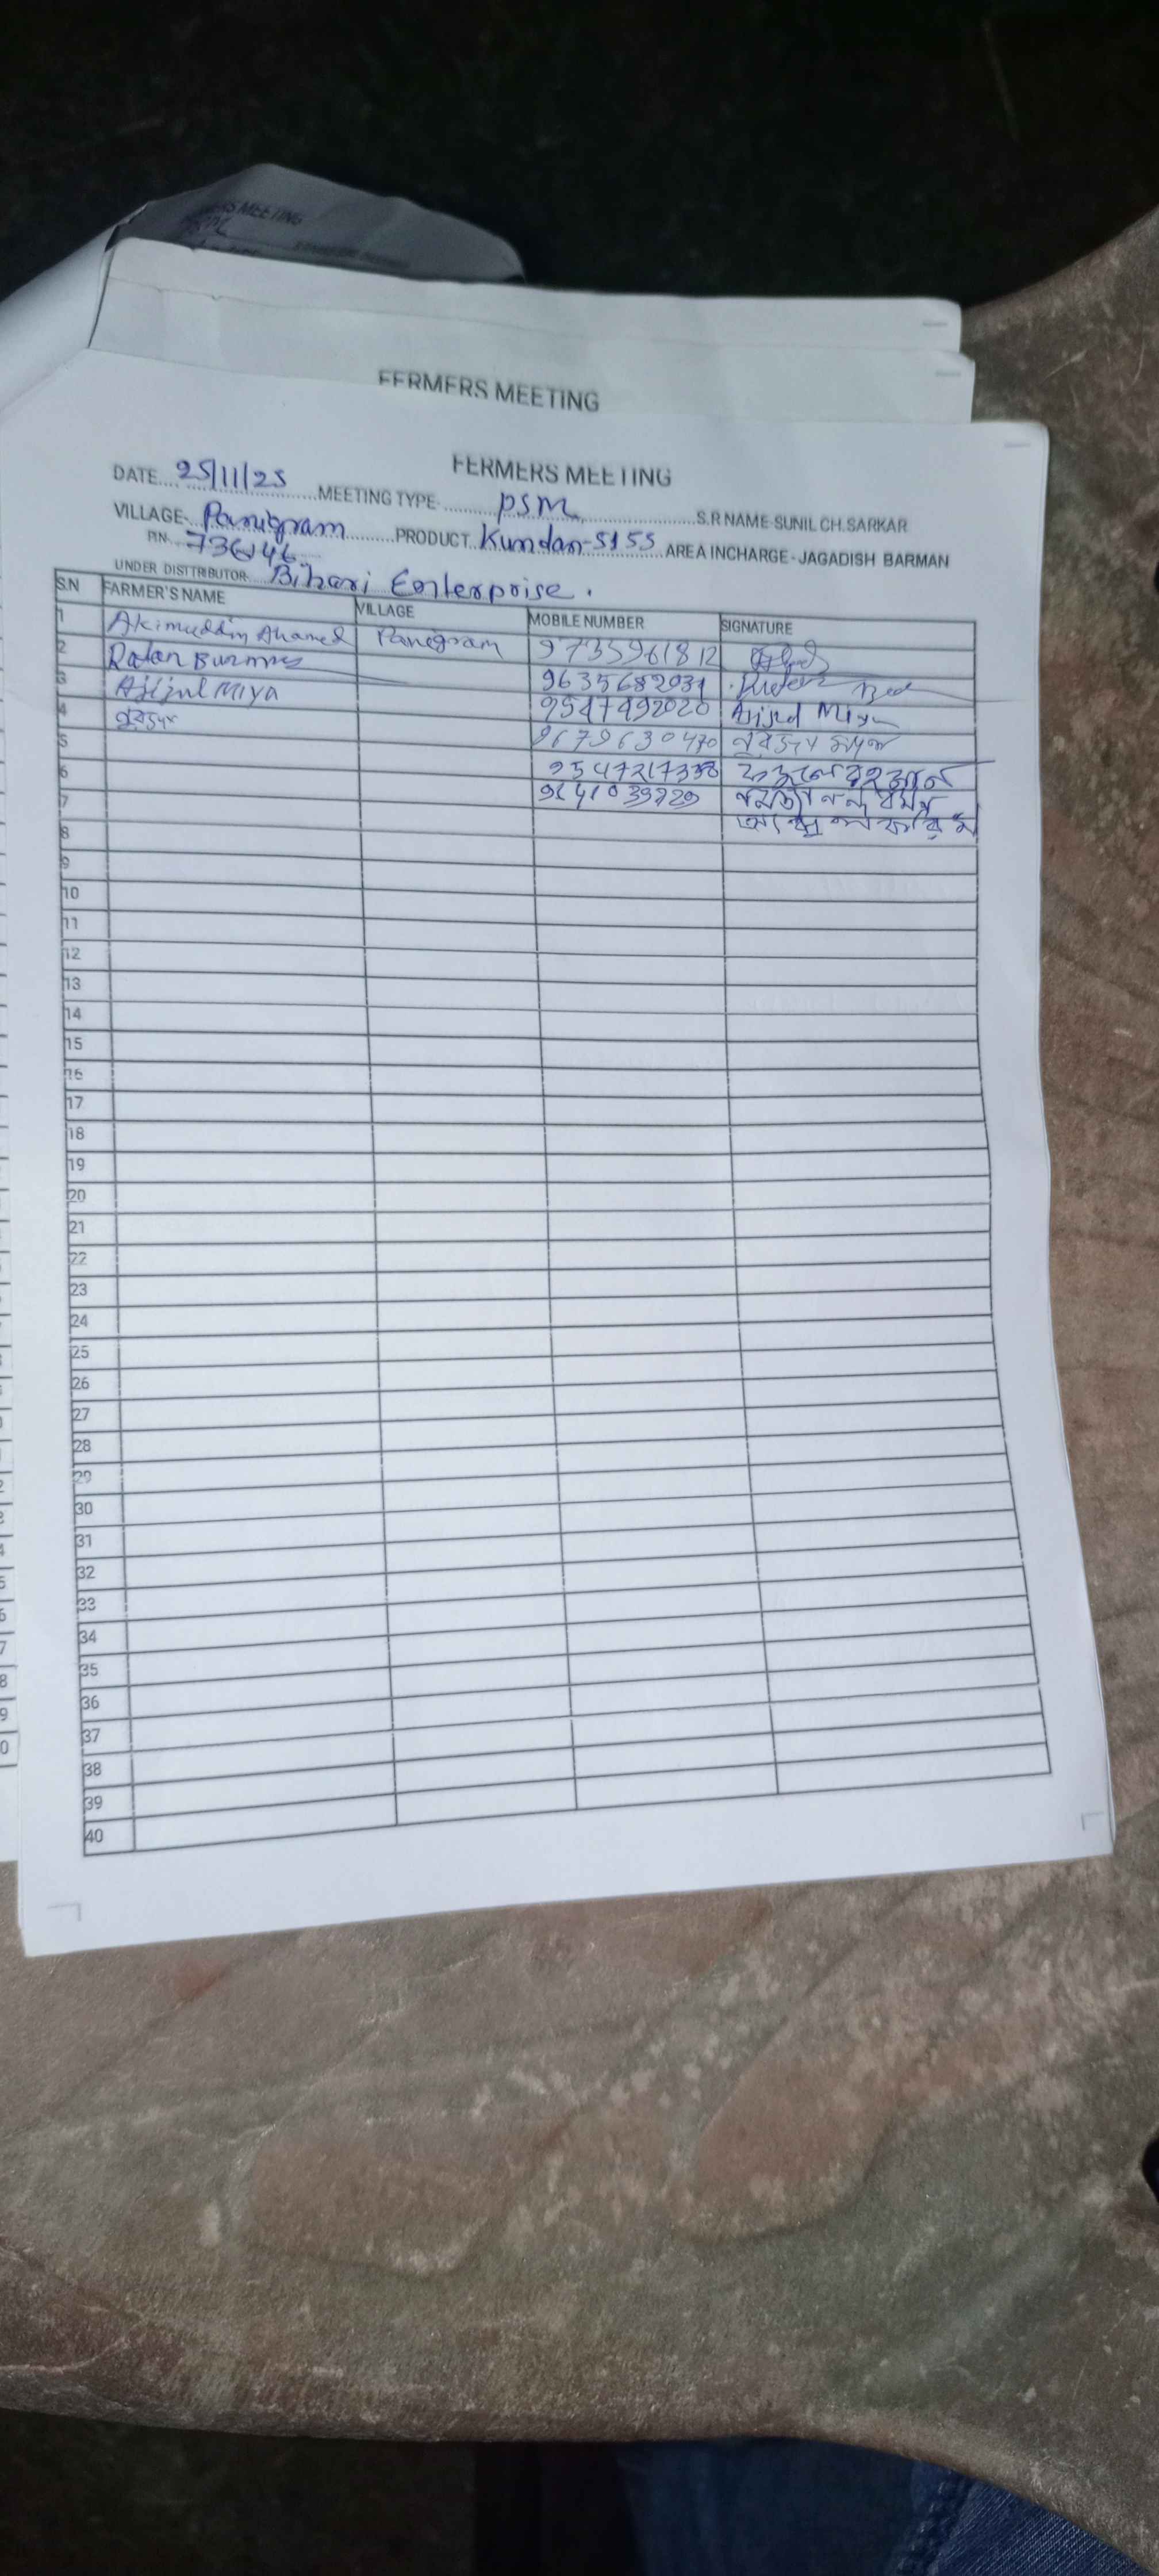 FERMERS MEETING
FERMERS MEETING
DATE.... 25/11/25 ....MEETING TYPE....... PSM ....S.R NAME-SUNIL CH.SARKAR
VILLAGE- Panigram ....PRODUCT. Kundan-5155 AREA INCHARGE-JAGADISH BARMAN
PIN- 736146
UNDER DISTTRIBUTOR- Bihari Enterprise.
S.N FARMER'S NAME VILLAGE MOBILE NUMBER SIGNATURE
1 Akimuddin Ahamed Panigram 9735961812
2 Ratan Burman 9635682031
3 Ajijul Miya 9547492020 Ajijul Miya
4 9679630470
5 9547217338
6
7
8
9
10
11
12
13
14
15
16
17
18
19
20
21
22
23
24
25
26
27
28
29
30
31
32
33
34
35
36
37
38
39
40